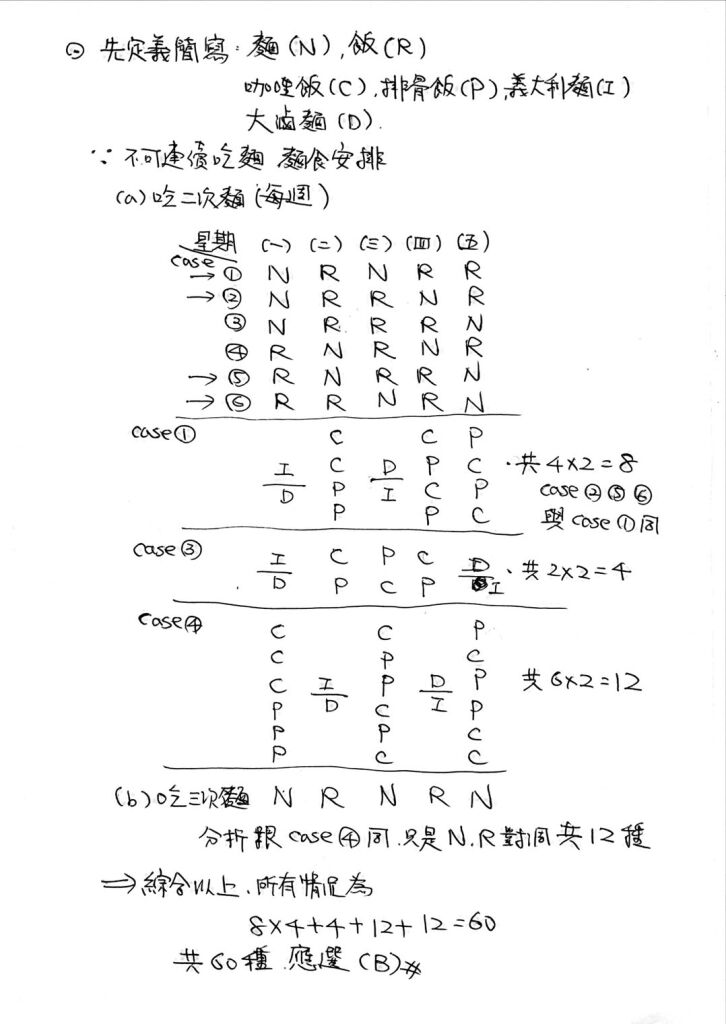 ⊙ 先定義簡寫：麵(N), 飯(R)
咖哩飯(C), 排骨飯(P), 義大利麵(I)
大滷麵(D).
∵ 不可連續吃麵 麵食安排
(a) 吃二次麵(每週)
星期 (一) (二) (三) (四) (五)
case
→ ① N R N R R
→ ② N R R N R
③ N R R R N
④ R N R N R
→ ⑤ R N R R N
→ ⑥ R R N R N
case① C C P
I C D P C ·共4×2=8
D P I C P case②⑤⑥
P P C 與case①同
case③ I C P C D ·共2×2=4
D P C P I
case④ C C P
C P C
C I P D P 共6×2=12
P D C I P
P P C
P C C
(b) 吃三次麵 N R N R N
分析跟case④同.只是N.R對調共12種
⇒ 綜合以上.所有情況為
8×4+4+12+12=60
共60種.應選(B)#